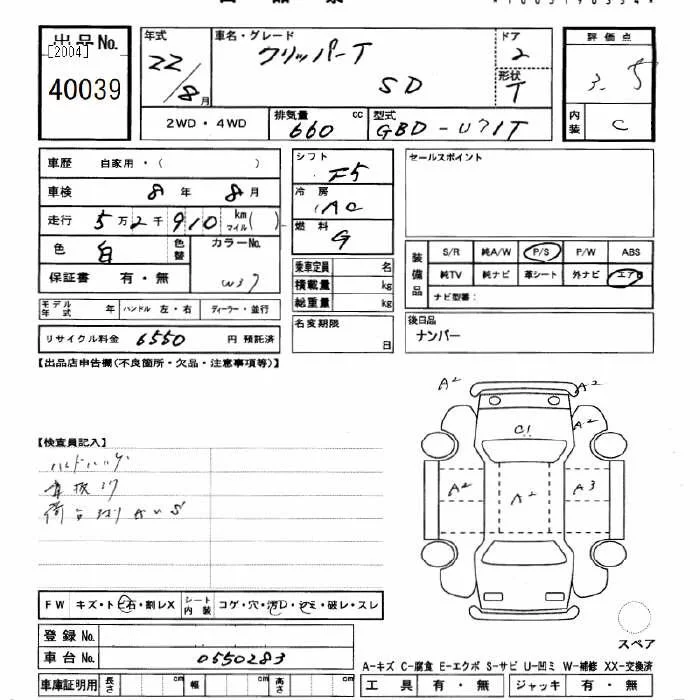 出品No.
[2004]
40039
年式
22/8月
車名・グレード
クリッパーT
SD
ドア
2
形状
T
評価点
3.5
内装
C
2WD・4WD
排気量
660 cc
型式
GBD-U71T
車歴 自家用・( )
車検 8年 8月
走行 5万2千910 km マイル( )
色 白
色替
カラーNo.
W37
保証書 有・無
モデル年式 年
ハンドル 左・右
ディーラー・並行
リサイクル料金 6550 円 預託済
シフト
F5
冷房
AC
燃料
G
乗車定員 名
積載量 kg
総重量 kg
名変期限
日
セールスポイント
装備品
S/R 純A/W P/S P/W ABS
純TV 純ナビ 革シート 外ナビ エアB
ナビ型番:
後日品
ナンバー
【出品店申告欄(不良箇所・欠品・注意事項等)】
【検査員記入】
A2
A2
A2
C1
A2
A2
A3
FW キズ・トビ石・割レX
シート内装 コゲ・穴・汚レ・シミ・破レ・スレ
登録No.
車台No. 0550283
車庫証明用 長さ cm 幅 cm 高さ cm
スペア
A-キズ C-腐食 E-エクボ S-サビ U-凹ミ W-補修 XX-交換済
工具 有・無 ジャッキ 有・無